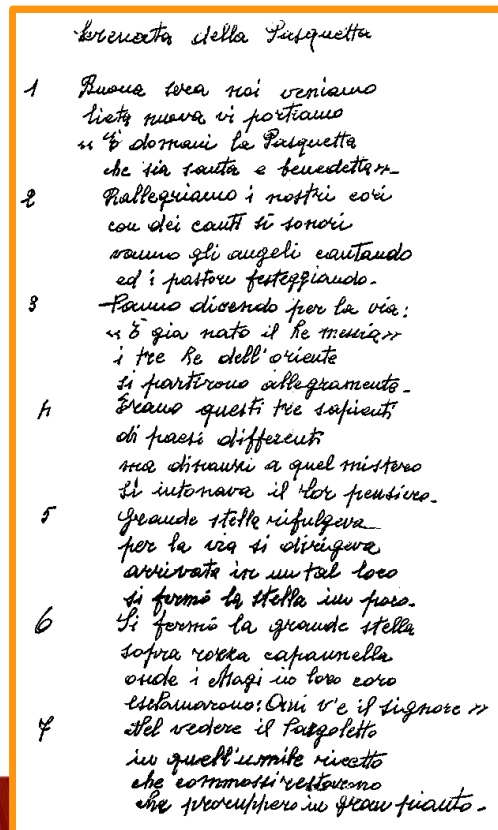 Serenata della Pasquetta
1 Buona sera noi veniamo
lieta nuova vi portiamo
«È domani la Pasquetta
che sia santa e benedetta»
2 Rallegriamo i nostri cori
con dei canti sì sonori
vanno gli angeli cantando
ed i pastori festeggiando.
3 Vanno dicendo per la via:
«È già nato il Re messia»
i tre Re dell'oriente
si partirono allegramente.
4 Erano questi tre sapienti
di paesi differenti
ma dinanzi a quel mistero
si intonava il lor pensiero.
5 Grande stella rifulgeva
per la via si dirigeva
arrivata in un tal loco
si fermò la stella un poco.
6 Si fermò la grande stella
sopra rozza capannella
onde i Magi in loro coro
esclamarono: Qui v'è il signore »
7 Nel vedere il Pargoletto
in quell'umile ricetto
che commossi restarono
che proruppero in gran pianto.